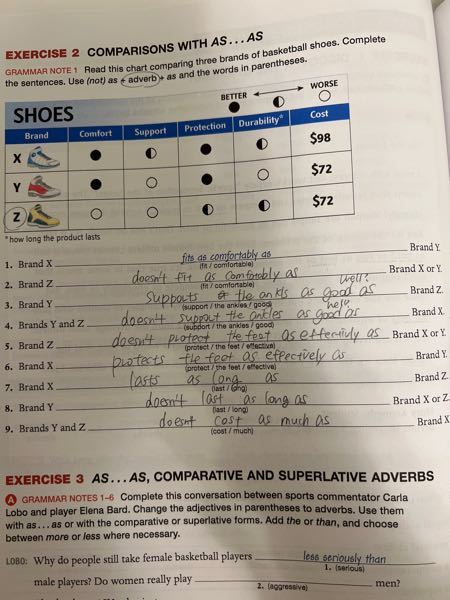 EXERCISE 2 COMPARISONS WITH AS...AS
GRAMMAR NOTE 1 Read this chart comparing three brands of basketball shoes. Complete
the sentences. Use (not) as + adverb + as and the words in parentheses.
BETTER WORSE
SHOES
Brand Comfort Support Protection Durability* Cost
X $98
Y $72
Z $72
*how long the product lasts
1. Brand X fits as comfortably as Brand Y.
(fit / comfortable)
2. Brand Z doesn't fit as comfortably as Brand X or Y.
(fit / comfortable)
well?
3. Brand Y supports the ankls as good as Brand Z.
(support / the ankles / good)
well?
4. Brands Y and Z doesn't support the ankles as good as Brand X.
(support / the ankles / good)
5. Brand Z doesn't protect the feet as effectively as Brand X or Y.
(protect / the feet / effective)
6. Brand X protects the feet as effectively as Brand Y.
(protect / the feet / effective)
7. Brand X lasts as long as Brand Z.
(last / long)
8. Brand Y doesn't last as long as Brand X or Z.
(last / long)
9. Brands Y and Z doesnt cost as much as Brand X
(cost / much)
EXERCISE 3 AS...AS, COMPARATIVE AND SUPERLATIVE ADVERBS
A GRAMMAR NOTES 1–6 Complete this conversation between sports commentator Carla
Lobo and player Elena Bard. Change the adjectives in parentheses to adverbs. Use them
with as...as or with the comparative or superlative forms. Add the or than, and choose
between more or less where necessary.
LOBO: Why do people still take female basketball players less seriously than
1. (serious)
male players? Do women really play men?
2. (aggressive)